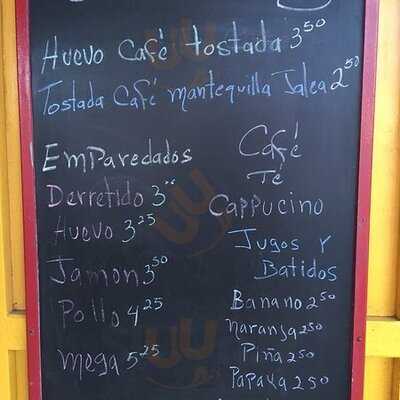 Huevo Café tostada 3 50
Tostada Café mantequilla Jalea 2 50
EmParedados
Derretido 3
Huevo 3 25
Jamon 3 50
Pollo 4 25
Mega 5 25
Café
Té
Cappucino
Jugos Y
Batidos
Banano 2 50
naranja 2 50
Piña 2 50
PaPaya 2 50